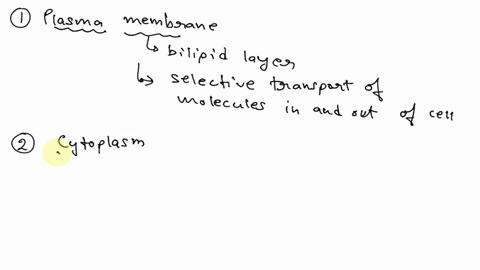 ① Plasma membrane
↳ bilipid layer
↳ selective transport of
molecules in and out of cell
② Cytoplasm